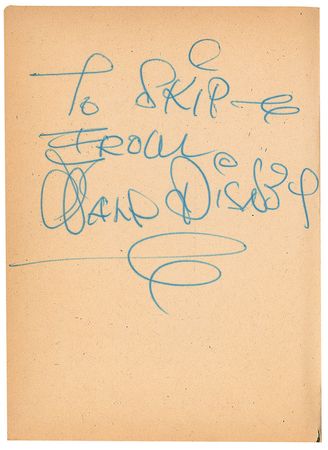 To SKIP -
FROM
WALT DISNEY